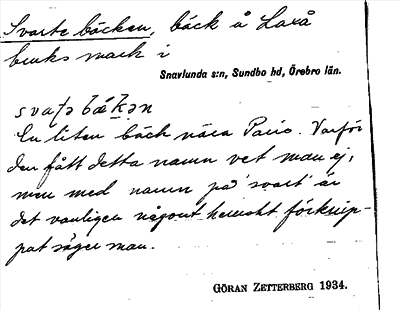 Svarte bäcken, bäck å Laxå
bruks mark i
Snavlunda s:n, Sundbo hd, Örebro län.
En liten bäck nära Paris. Varför
den fått detta namn vet man ej,
men med namn på 'svart' är
det vanligen något hemskt förknip-
pat säger man.
GÖRAN ZETTERBERG 1934.